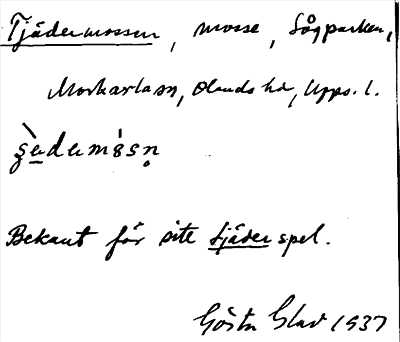 Tjädermossen, mosse, Sågparken,
Morkarlasn, Olands hd, Upps. l.
Bekant för sitt tjäderspel.
Gösta Glav 1937